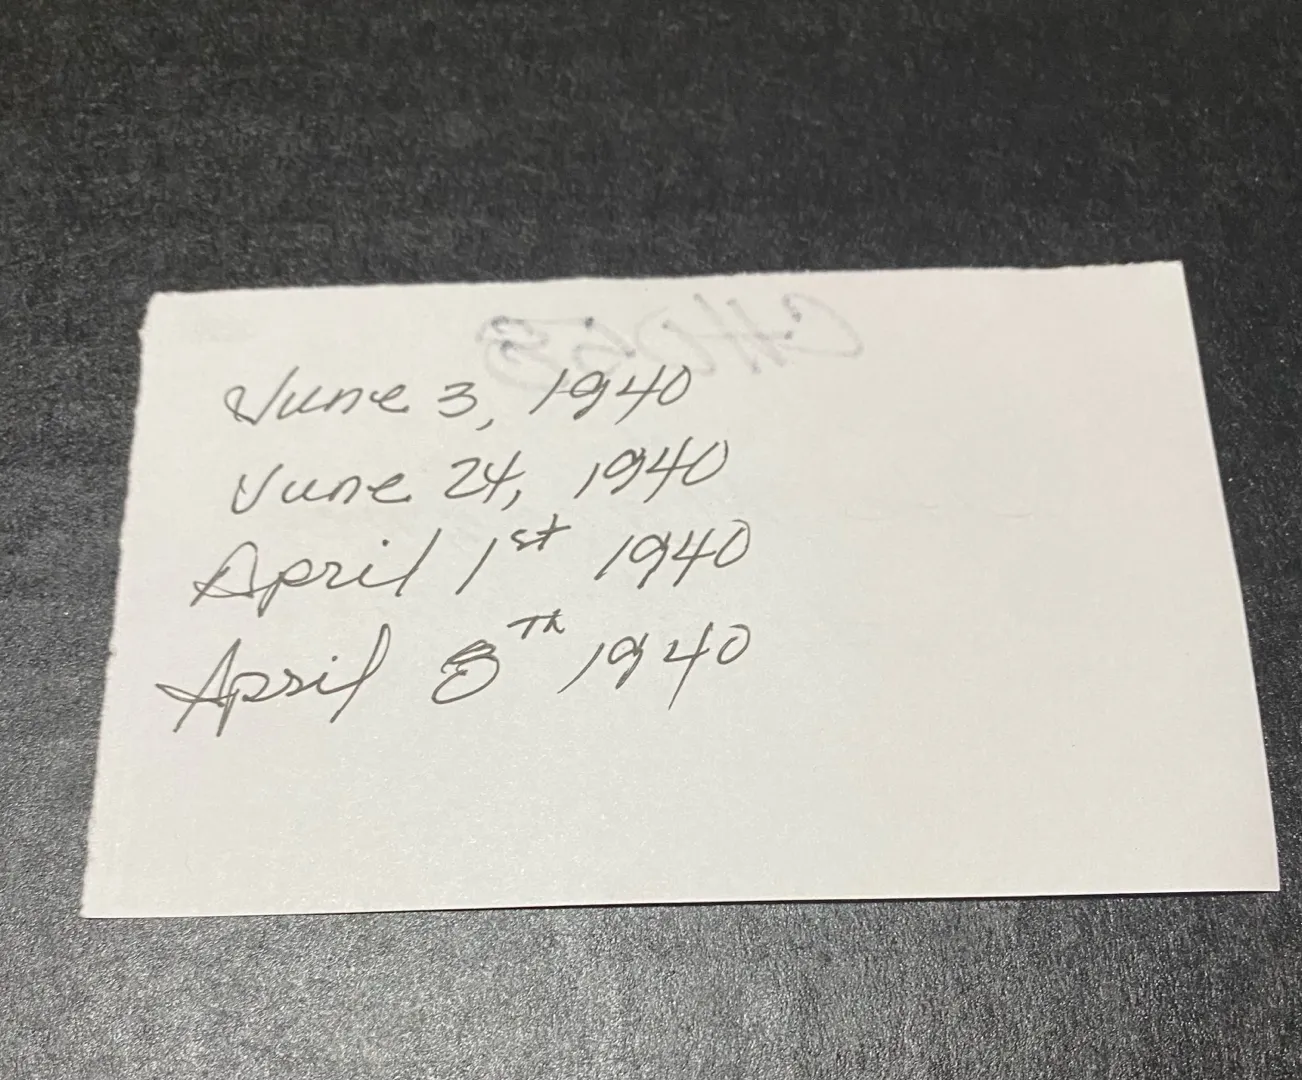 June 3, 1940
June 24, 1940
April 1st 1940
April 8Th 1940